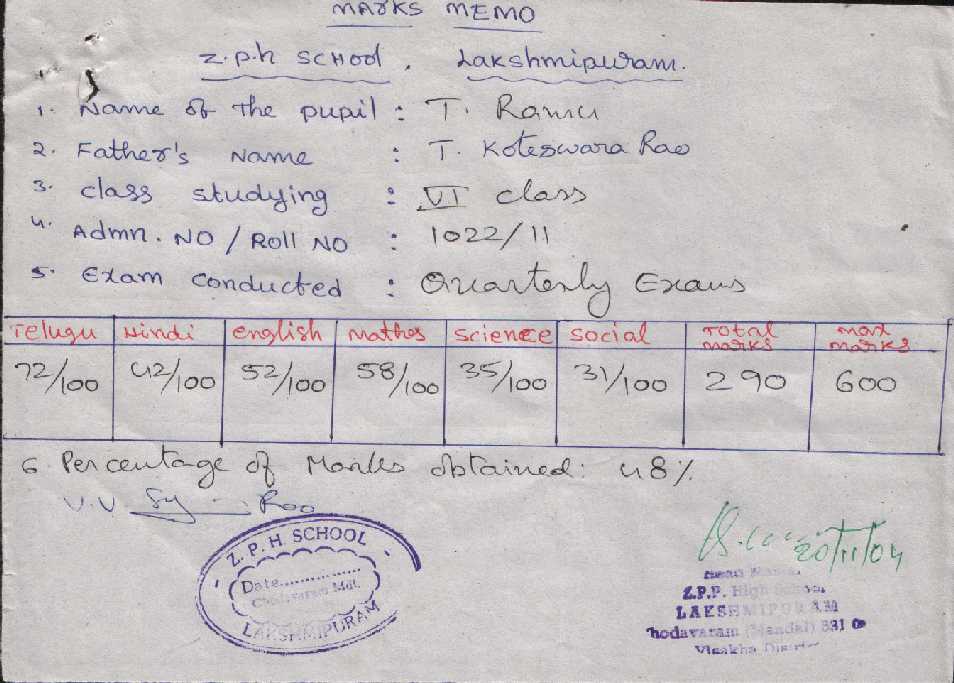 MARKS MEMO
Z.P.H SCHOOL, Lakshmipuram.
1. Name of the pupil : T. Ramu
2. Father's Name : T. Koteswara Rao
3. class studying : VI class
4. Admn. NO / Roll NO : 1022/11
5. Exam conducted : Quarterly Exams
Telugu Hindi english Mathes Science social TOTAL marks max marks
72/100 42/100 52/100 58/100 35/100 31/100 290 600
6. Percentage of Marks obtained: 48%
V.V Rao
Z. P. H. SCHOOL
Date..................
Chodavaram Mdl.
LAKSHMIPURAM
20/11/04
Z.P.P. High School
LAKSHMIPURAM
hodavaram (Mandal) 531 0
Visakha District